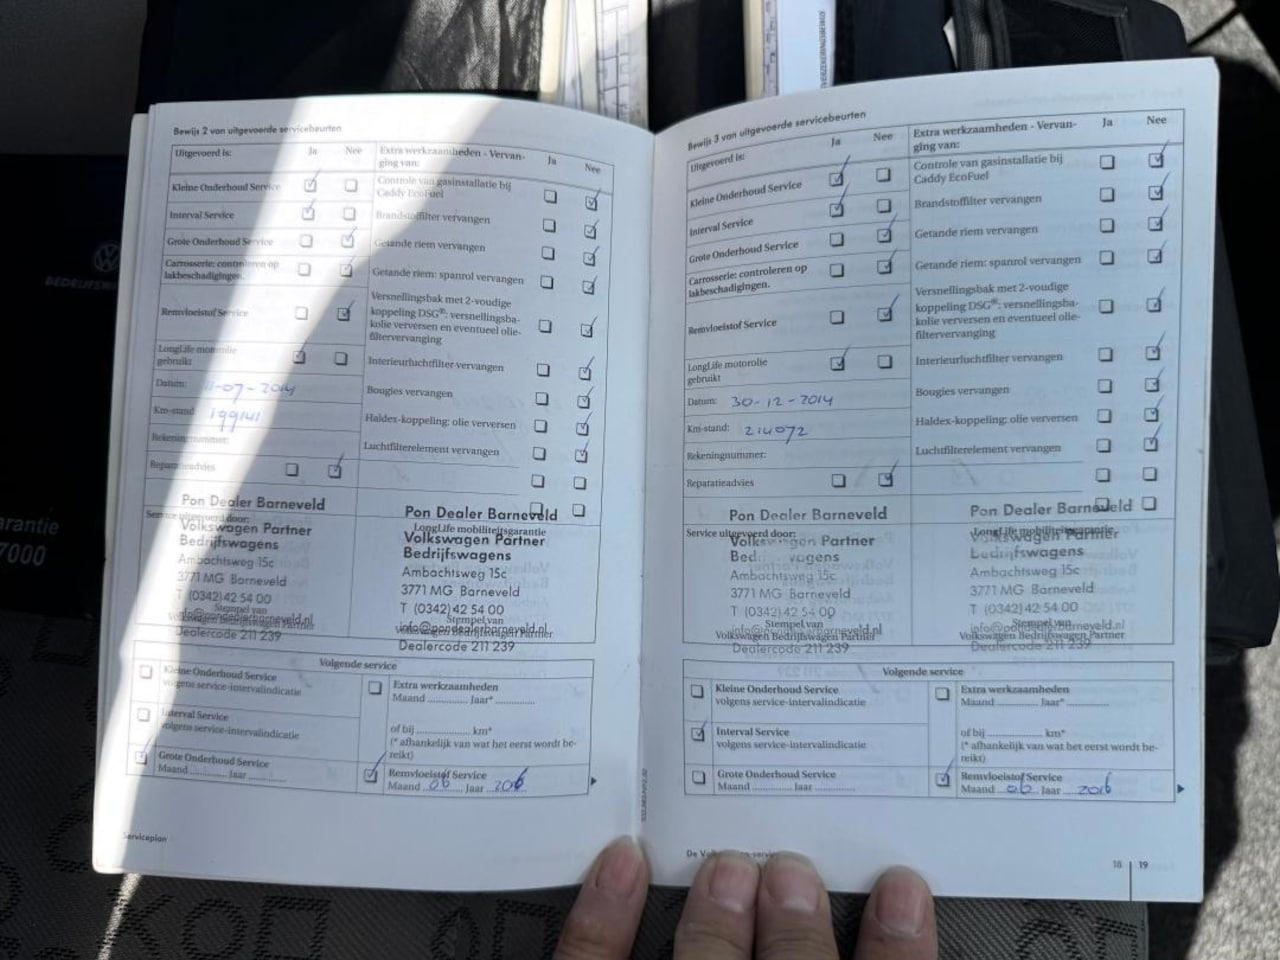 VERZEKERINGSBEWIJS
BEDRIJFSW
arantie
7000
Bewijs 2 van uitgevoerde servicebeurten
Uitgevoerd is:
Ja
Nee
Kleine Onderhoud Service
Interval Service
Grote Onderhoud Service
Carrosserie: controleren op
lakbeschadigingen.
Remvloeistof Service
LongLife motorolie
gebruikt
Datum: 11-07-2014
Km-stand: 199141
Rekeningnummer:
Reparatieadvies
Extra werkzaamheden - Vervan-
ging van:
Ja
Nee
Controle van gasinstallatie bij
Caddy EcoFuel
Brandstoffilter vervangen
Getande riem vervangen
Getande riem: spanrol vervangen
Versnellingsbak met 2-voudige
koppeling DSG®: versnellingsba-
kolie verversen en eventueel olie-
filtervervanging
Interieurluchtfilter vervangen
Bougies vervangen
Haldex-koppeling: olie verversen
Luchtfilterelement vervangen
Service uitgevoerd door:
Pon Dealer Barneveld
Volkswagen Partner
Bedrijfswagens
Ambachtsweg 15c
3771 MG Barneveld
T (0342) 42 54 00
Stempel van
info@pondealerbarneveld.nl
Volkswagen Bedrijfswagen Partner
Dealercode 211 239
Pon Dealer Barneveld
LongLife mobiliteitsgarantie
Volkswagen Partner
Bedrijfswagens
Ambachtsweg 15c
3771 MG Barneveld
T (0342) 42 54 00
Stempel van
info@pondealerbarneveld.nl
Volkswagen Bedrijfswagen Partner
Dealercode 211 239
Volgende service
Kleine Onderhoud Service
volgens service-intervalindicatie
Interval Service
volgens service-intervalindicatie
Grote Onderhoud Service
Maand ............ Jaar ............
Extra werkzaamheden
Maand ............ Jaar* ............
of bij ........................ km*
(* afhankelijk van wat het eerst wordt be-
reikt)
Remvloeistof Service
Maand 06 Jaar 2016
Serviceplan
Bewijs 3 van uitgevoerde servicebeurten
Uitgevoerd is:
Ja
Nee
Kleine Onderhoud Service
Interval Service
Grote Onderhoud Service
Carrosserie: controleren op
lakbeschadigingen.
Remvloeistof Service
LongLife motorolie
gebruikt
Datum: 30-12-2014
Km-stand: 214072
Rekeningnummer:
Reparatieadvies
Extra werkzaamheden - Vervan-
ging van:
Ja
Nee
Controle van gasinstallatie bij
Caddy EcoFuel
Brandstoffilter vervangen
Getande riem vervangen
Getande riem: spanrol vervangen
Versnellingsbak met 2-voudige
koppeling DSG®: versnellingsba-
kolie verversen en eventueel olie-
filtervervanging
Interieurluchtfilter vervangen
Bougies vervangen
Haldex-koppeling: olie verversen
Luchtfilterelement vervangen
Pon Dealer Barneveld
Service uitgevoerd door:
Volkswagen Partner
Bedrijfswagens
Ambachtsweg 15c
3771 MG Barneveld
T (0342) 42 54 00
Stempel van
info@pondealerbarneveld.nl
Volkswagen Bedrijfswagen Partner
Dealercode 211 239
Pon Dealer Barneveld
LongLife mobiliteitsgarantie
Volkswagen Partner
Bedrijfswagens
Ambachtsweg 15c
3771 MG Barneveld
T (0342) 42 54 00
Stempel van
info@pondealerbarneveld.nl
Volkswagen Bedrijfswagen Partner
Dealercode 211 239
Volgende service
Kleine Onderhoud Service
volgens service-intervalindicatie
Interval Service
volgens service-intervalindicatie
Grote Onderhoud Service
Maand ............ Jaar ............
Extra werkzaamheden
Maand ............ Jaar* ............
of bij ........................ km*
(* afhankelijk van wat het eerst wordt be-
reikt)
Remvloeistof Service
Maand 06 Jaar 2016
18 | 19